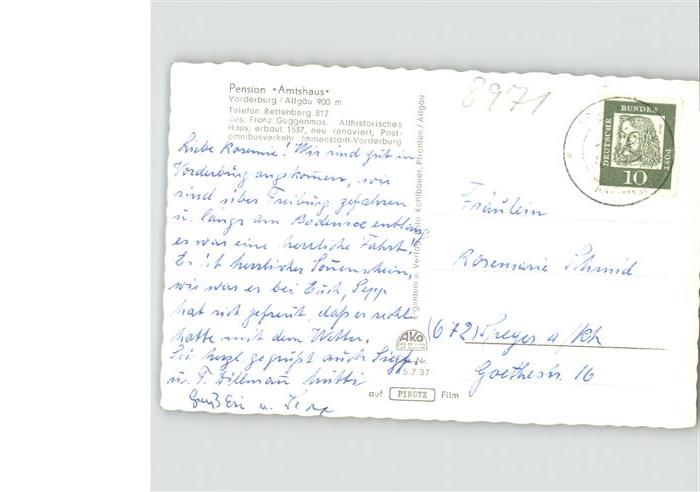 Pension "Amtshaus"
Vorderburg/Allgäu 900 m
Telefon Rettenberg 812
Bes. Franz Guggenmos. Althistorisches
Haus, erbaut 1537, neu renoviert, Post-
omnibusverkehr Immenstadt-Vorderburg
Liebe Rosemie! Wir sind gut in
Vorderburg angekommen, wir
sind über Freiburg gefahren
u. längs am Bodensee entlang
es war eine herrliche Fahrt!
Es ist herrlicher Sonnenschein,
wie war es bei Euch, Sepp
hat sich gefreut, daß er recht
hatte mit dem Wetter.
Sei herzl. gegrüßt auch Sigg.
u. F. Dillmau Mutti
Gruß Eri u. Sepp
Eigentum u. Verlag Kohlbauer, Pfronten/Allgäu
AKO
Nr.
5.7.37
auf PERUTZ Film
8971
DEUTSCHE
BUNDES
POST
10
Fräulein
Rosemarie Schmid
(672) Speyer a/Rh
Goethestr. 16